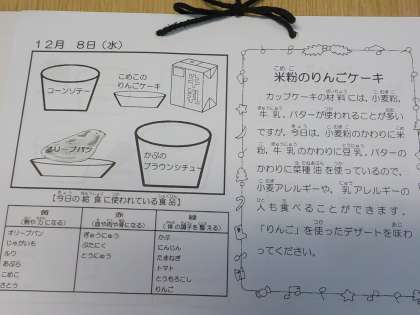 12月 8日(水)
コーンソテー
こめこの
りんごケーキ
オリーブパン
かぶの
ブラウンシチュー
【今日の給食に使われている食品】
黄
(熱や力になる)
オリーブパン
じゃがいも
ルウ
あぶら
こめこ
さとう
赤
(血や肉や骨になる)
ぎゅうにゅう
ぶたにく
とうにゅう
緑
(体の調子を整える)
かぶ
にんじん
たまねぎ
トマト
とうもろこし
りんご
米粉のりんごケーキ
カップケーキの材料には、小麦粉、
牛乳、バターが使われることが多い
ですが、今日は、小麦粉のかわりに米
粉、牛乳のかわりに豆乳、バターの
かわりに菜種油を使っているので、
小麦アレルギーや、乳アレルギーの
人も食べることができます。
「りんご」を使ったデザートを味わ
ってください。